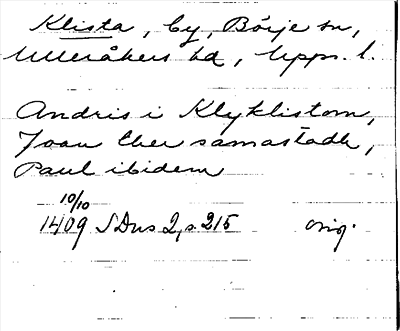 Klista, by, Börje sn,
Ulleråkers hd, Upps. l.
Andris i Klyklistom,
Joan Ther samastadh,
Paul ibidem
10/10
1409 SDns 2, s. 215 orig.